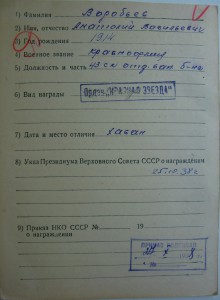 1) Фамилия Воробьев
2) Имя, отчество Анатолий Васильевич
3) Год рождения 1912
4) Военное звание красноармеец
5) Должность и часть
6) Вид награды Орден „КРАСНАЯ ЗВЕЗДА"
7) Дата и место отличия Хасан
8) Указ Президиума Верховного Совета СССР о награждении
25.10.38г
9) Приказ НКО СССР № 19
о награждении